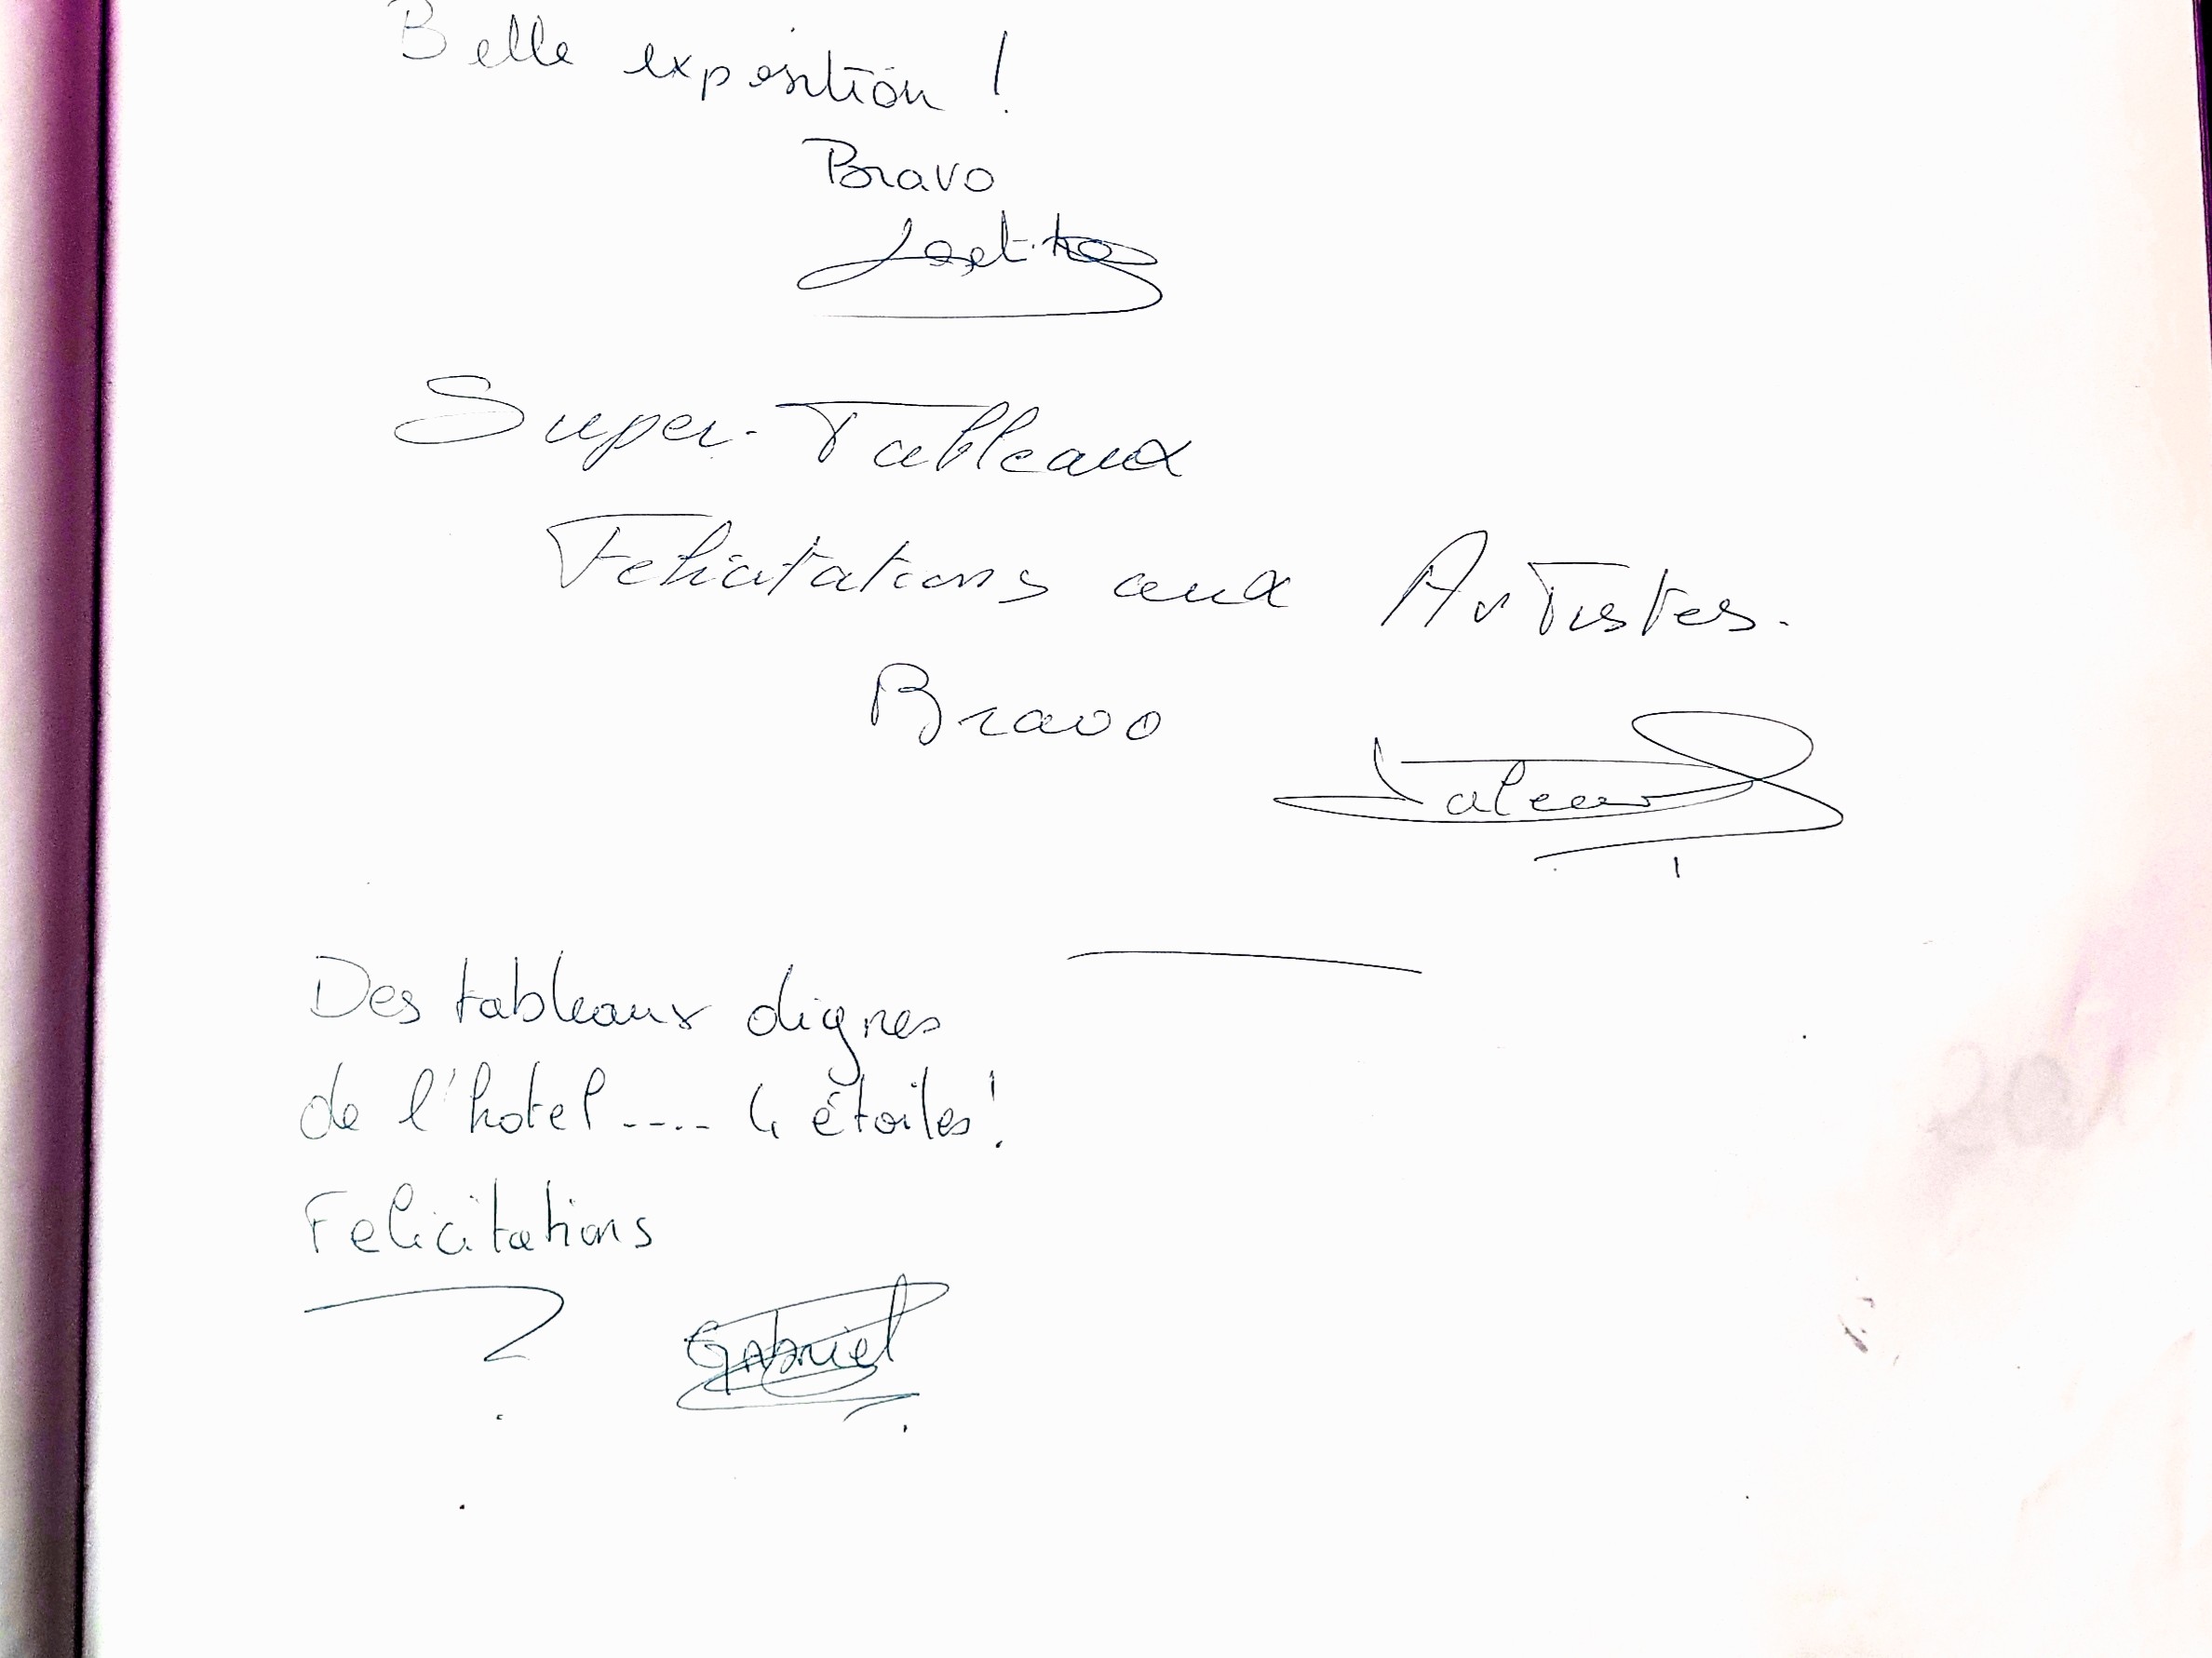 Belle exposition !
Bravo
Laetitia
Super-Tableaux
Felicitations aux Artistes.
Bravo
Des tableaux dignes
de l'hotel .... 4 étoiles !
Felicitations
Gabriel